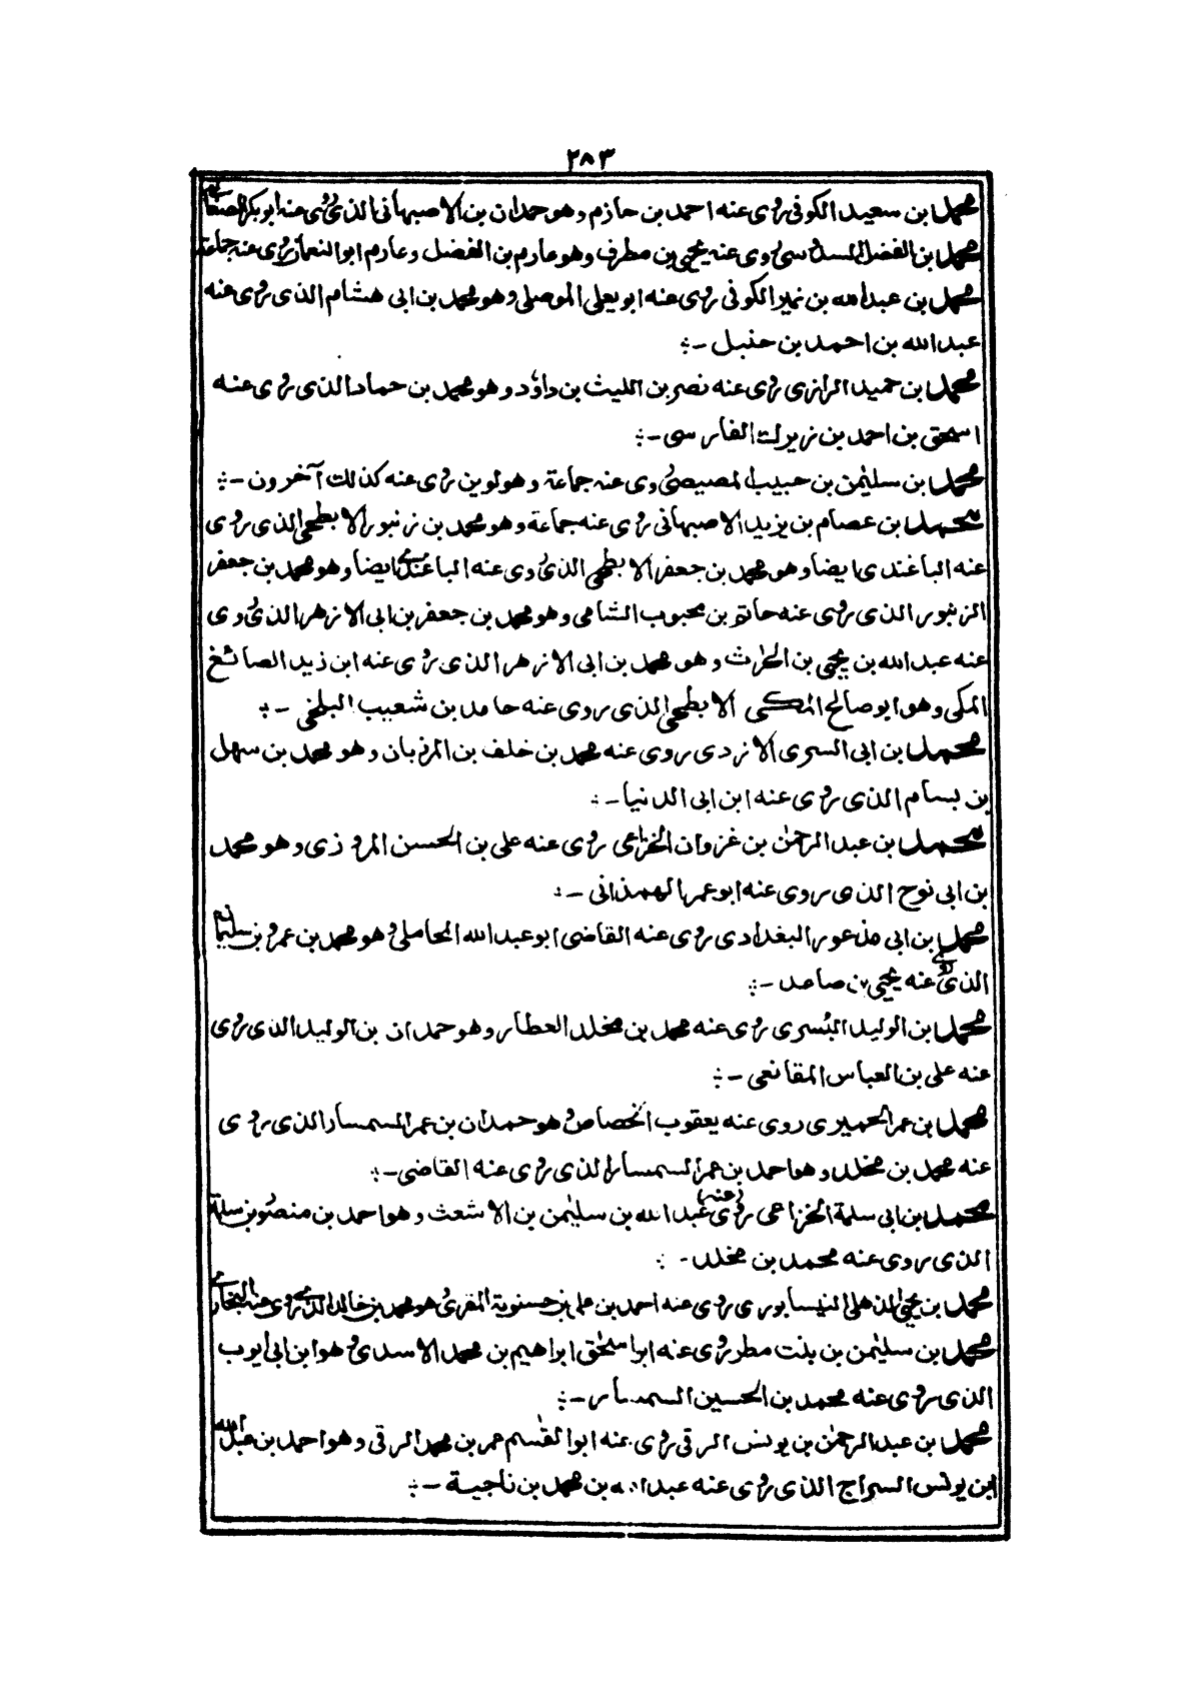 ٢٨٣
محمد بن سعيد الكوفى روى عنه احمد بن حازم وهو حمدان بن الاصبهانى الذى روى عنه ابو بكر الصنعانى
محمد بن الفضل السدوسى روى عنه يحيى بن مطرف وهو عارم بن الفضل وعارم ابو النعمان روى عنه جماعة
محمد بن عبد الله بن نمير الكوفى روى عنه ابو يعلى الموصلى وهو محمد بن ابى هشام الذى روى عنه
عبد الله بن احمد بن حنبل -:
محمد بن حميد الرازى روى عنه نصر بن الليث بن داؤد وهو محمد بن حماد الذى روى عنه
اسحق بن احمد بن زيرك الفارسى -:
محمد بن سليمٰن بن حبيب المصيصى روى عنه جماعة وهو لوين روى عنه كذلك آخرون -:
محمد بن عصام بن يزيد الاصبهانى روى عنه جماعة وهو محمد بن زنبور الابطحى الذى روى
عنه الباغندى ايضا وهو محمد بن جعفر الابطحى الذى روى عنه الباغندى ايضا وهو محمد بن جعفر
الزنبور الذى روى عنه حاتم بن محبوب الشامى وهو محمد بن جعفر بن ابى الازهر الذى روى
عنه عبد الله بن يحيى بن الحٰرث وهو محمد بن ابى الازهر الذى روى عنه ابن زيد الصائغ
المكى وهو ابو صالح المكى الابطحى الذى روى عنه حامد بن شعيب البلخى -:
محمد بن ابى السرى الازدى روى عنه محمد بن خلف بن المرزبان وهو محمد بن سهل
بن بسام الذى روى عنه ابن ابى الدنيا -:
محمد بن عبد الرحمٰن بن غزوان الخزاعى روى عنه على بن الحسن المروذى وهو محمد
بن ابى نوح الذى روى عنه ابو عمر الهمذانى -:
محمد بن ابى مذعور البغدادى روى عنه القاضى ابو عبد الله المحاملى وهو محمد بن عمرو بن سليمان
الذى روى عنه يحيى بن صاعد -:
محمد بن الوليد البُسرى روى عنه محمد بن مخلد العطار وهو حمدان بن الوليد الذى روى
عنه على بن العباس المقانعى -:
محمد بن عمر الحميرى روى عنه يعقوب الخصاص وهو حمدان بن عمر السمسار الذى روى
عنه محمد بن مخلد وهو احمد بن عمر السمسار الذى روى عنه القاضى -:
محمد بن ابى سلمة الخزاعى روى (عنه) عبد الله بن سليمٰن بن الاشعث وهو احمد بن منصور بن سلمة
الذى روى عنه محمد بن مخلد -:
محمد بن يحيىٰ الذهلى النيسابورى روى عنه احمد بن على بن حسنوية المقرئ وهو محمد بن خالد الذى روى عنه البخارى
محمد بن سليمٰن بن بنت مطر روى عنه ابو اسحٰق ابراهيم بن محمد الاسدى وهو ابن ابى ايوب
الذى روى عنه محمد بن الحسين السمسار -:
محمد بن عبد الرحمٰن بن يونس الرقى روى عنه ابو القٰسم عمر بن محمد الرقى وهو احمد بن عبد الله
ابن يونس السراج الذى روى عنه عبد الله بن محمد بن ناجية -: